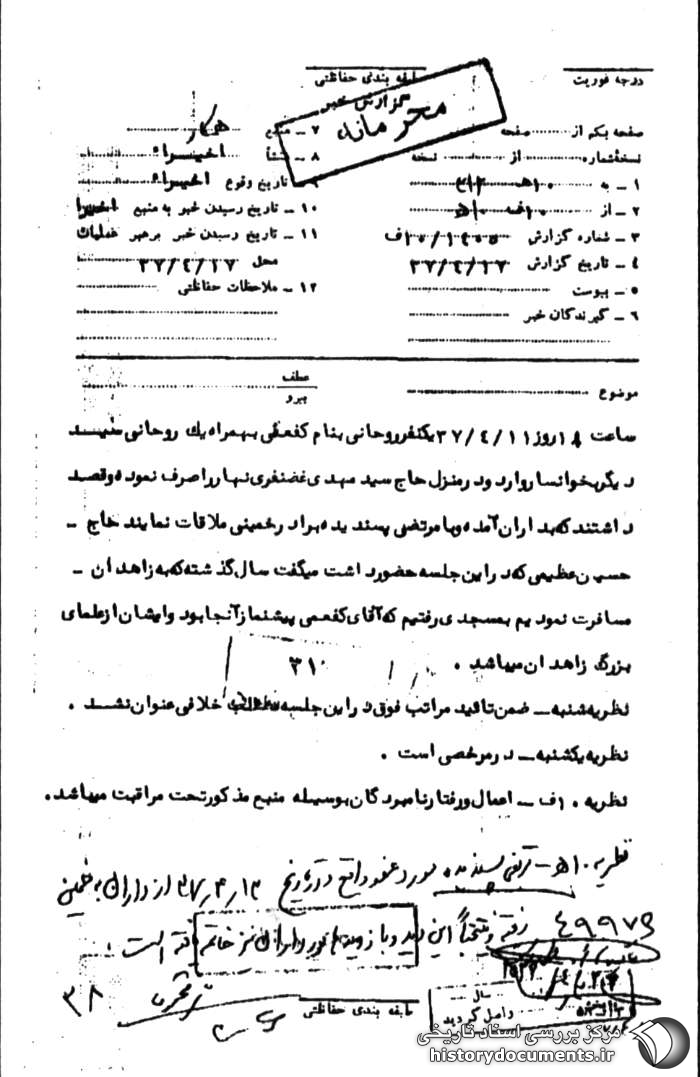 درجه فوریت
طبقه بندی حفاظتی
گزارش خبر
محرمانه
صفحه یکم از صفحه
نسخه شماره از نسخه
۱ ـ به ۱۰هـ ۳۱۲
۲ ـ از ۱۰ف ۵۱۰
۳ ـ شماره گزارش ف۱۰/۱۴۰۵
۴ ـ تاریخ گزارش ۳۷/۴/۱۷
۵ ـ پیوست
۶ ـ گیرندگان خبر
۷ ـ منبع همکار
۸ ـ منشأ اخیرا
۹ ـ تاریخ وقوع اخیرا
۱۰ ـ تاریخ رسیدن خبر به منبع اخیرا
۱۱ ـ تاریخ رسیدن خبر برهبر عملیات
محل ۳۷/۴/۱۷
۱۲ ـ ملاحظات حفاظتی
موضوع
عطف
پیرو
ساعت روز ۳۷/۴/۱۱ یکنفر روحانی بنام کفعمی بهمراه یك روحانی سید
دیگر بخوانسار وارد و در منزل حاج سید مهدی غضنفری نهار را صرف نموده و قصد
داشتند که بداران آمده و با مرتضی پسندیده برادر خمینی ملاقات نمایند حاج ـ
حسین عظیمی که در این جلسه حضور داشت میگفت سال گذشته که به زاهدان ـ
مسافرت نمودیم بمسجدی رفتیم که آقای کفعمی پیشنماز آنجا بود و ایشان از علمای
بزرگ زاهدان میباشد .
۳۱۰
نظریه شنبه ـ ضمن تائید مراتب فوق در این جلسه مطالب خلافی عنوان نشد .
نظریه یکشنبه ـ در مرخصی است .
نظریه ۱۰ف ـ اعمال و رفتار نامبردگان بوسیله منبع مذکور تحت مراقبت میباشد.
نظریه ۱۰هـ ـ مرتضی پسندیده مورد عفو واقع و در تاریخ ۳۷/۴/۱۳ از داران به خمین
رفته و نتیجتاً این دید و بازدیدها در داران نیز خاتمه یافته است .
۴۹۹۷۵
۳۸
طبقه بندی حفاظتی
مرکز بررسی اسناد تاریخی
historydocuments.ir